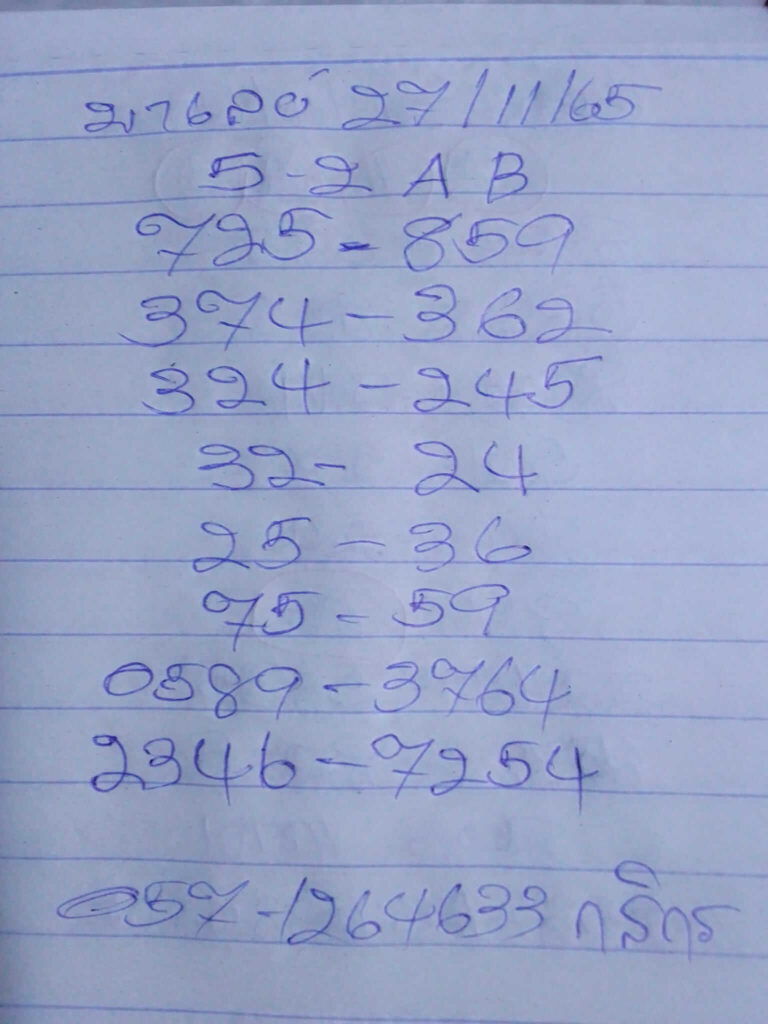 มาเลย์ 27/11/65
5-2 A B
725-859
374-362
324-245
32- 24
25-36
75-59
0589-3764
2346-7254
057-1264633 กสิกร